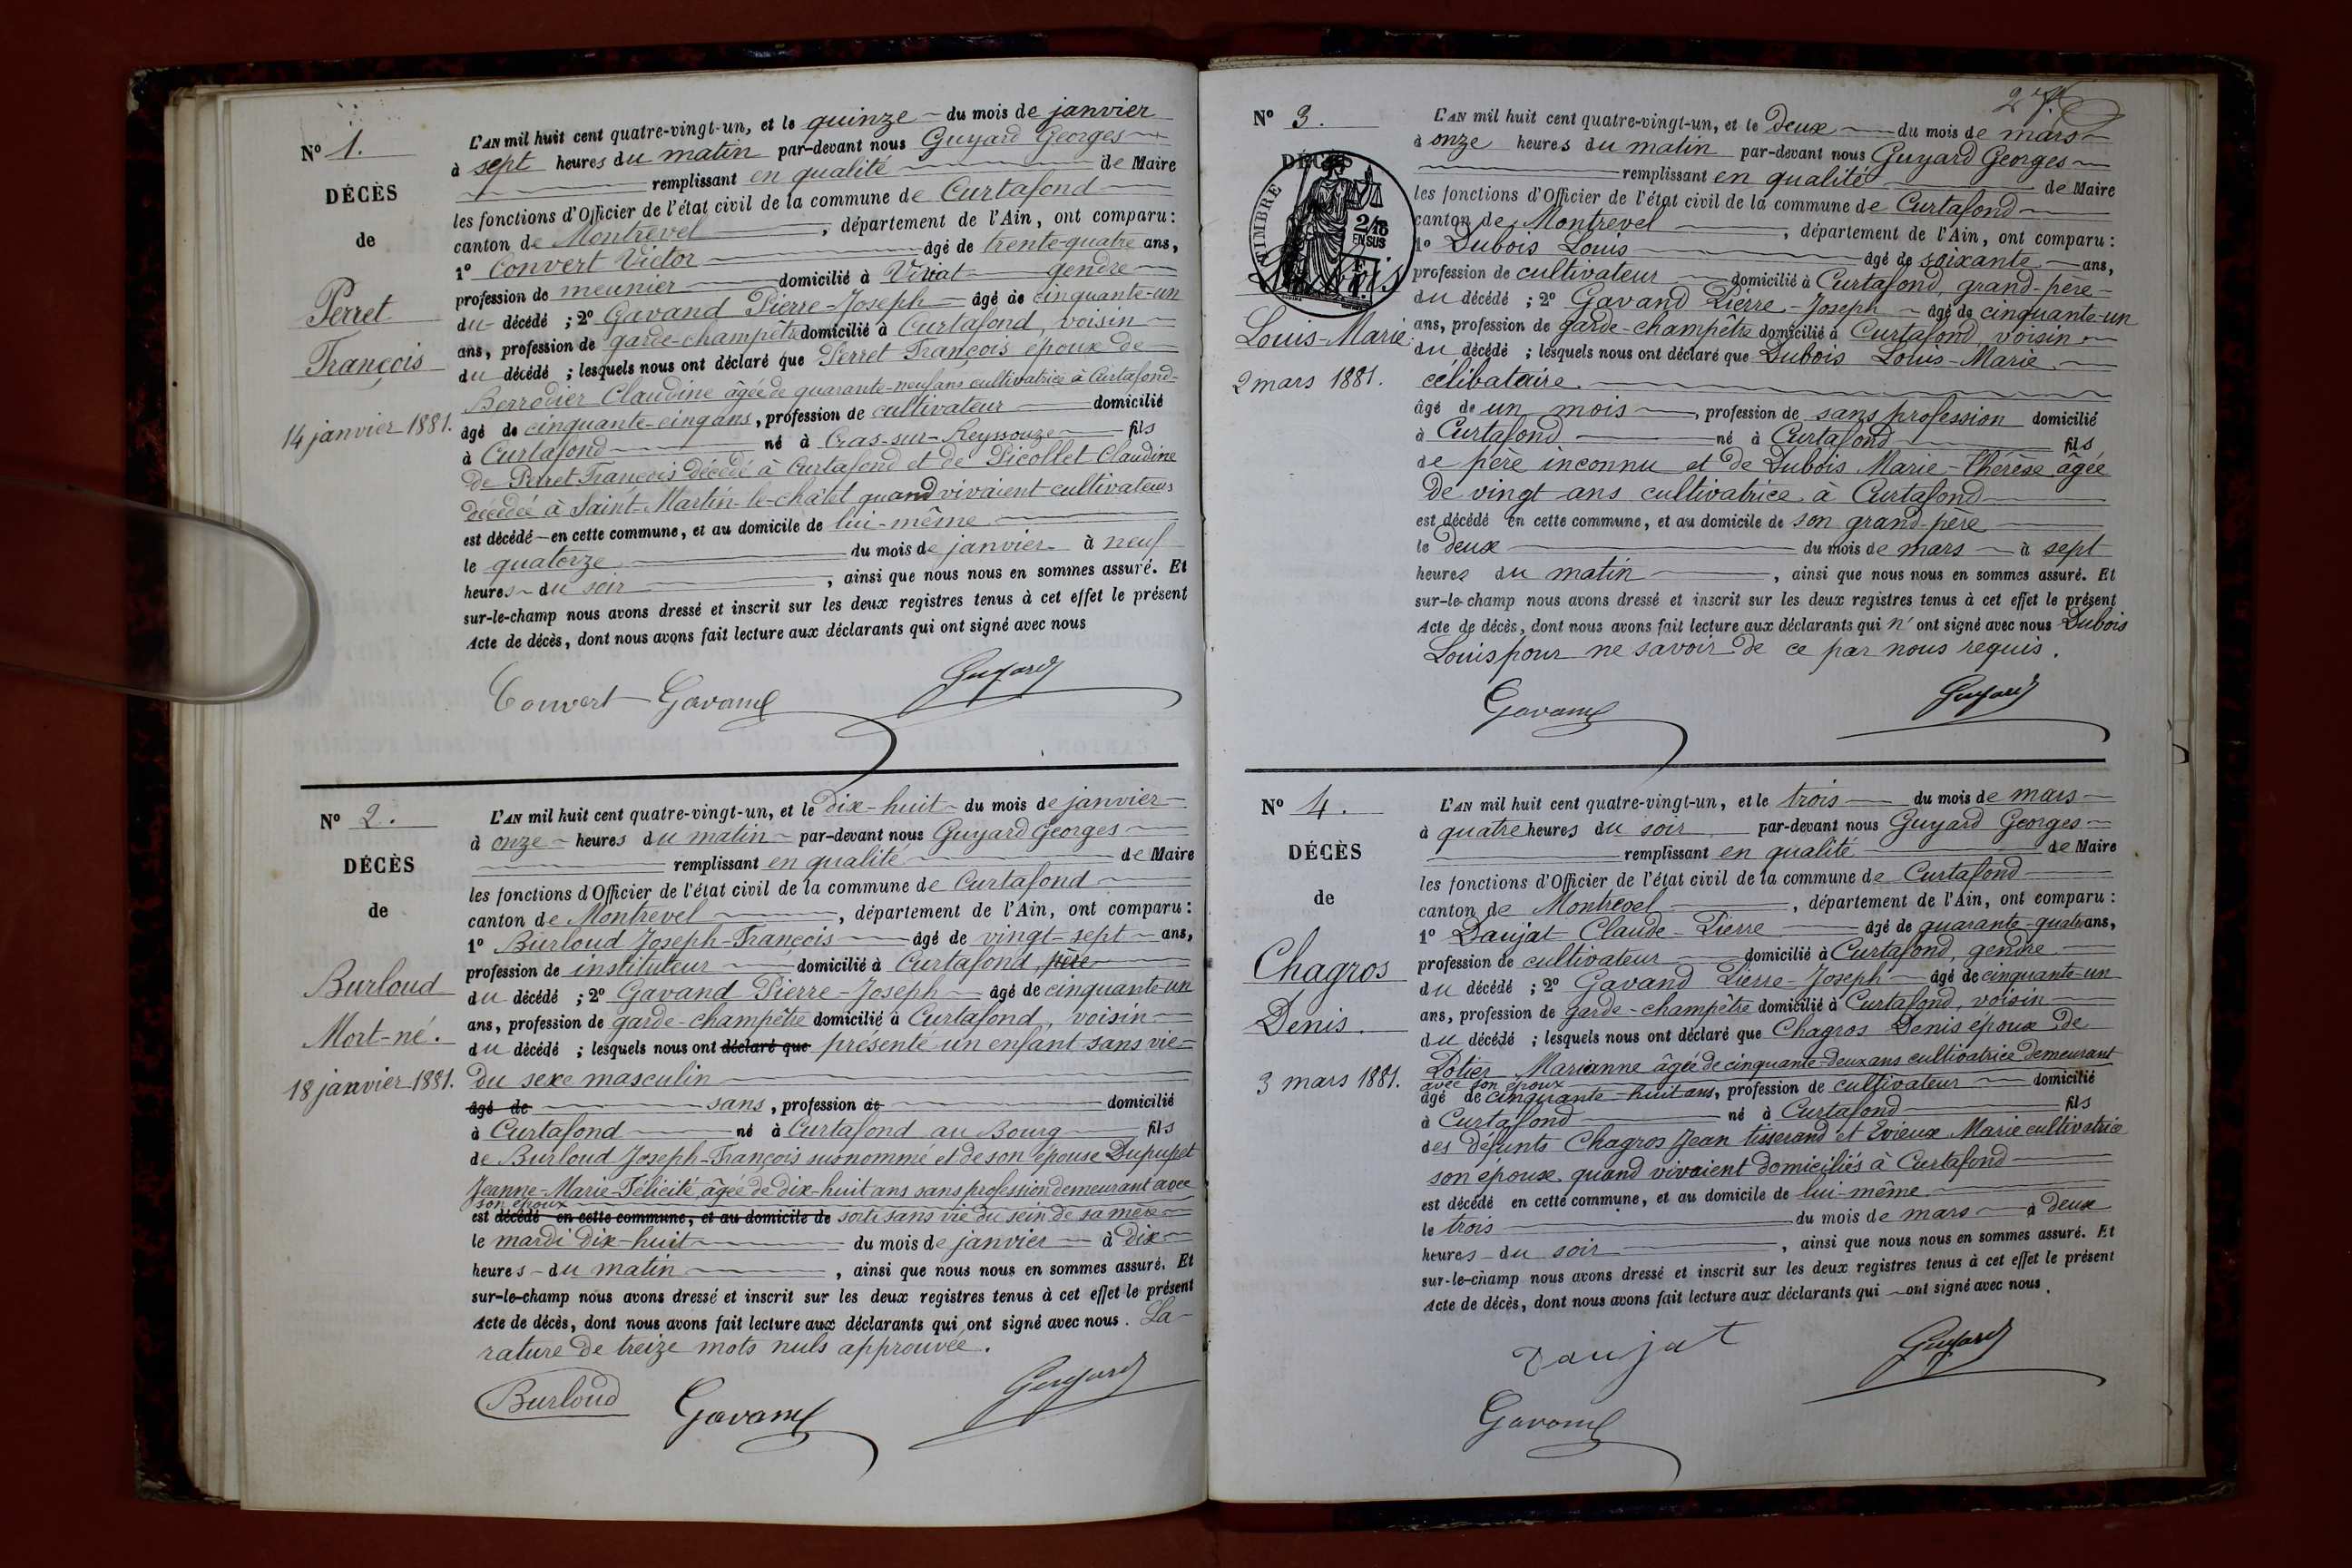 N° 1.
DÉCÈS
de
Perret
François
14 janvier 1881.
L'AN mil huit cent quatre-vingt-un, et le quinze du mois de janvier
à sept heures du matin par-devant nous Guyard Georges
remplissant en qualité de Maire
les fonctions d'Officier de l'état civil de la commune de Curtafond
canton de Montrevel, département de l'Ain, ont comparu:
1° Convert Victor âgé de trente-quatre ans,
profession de meunier domicilié à Viriat gendre
du décédé ; 2° Gavand Pierre-Joseph âgé de cinquante-un
ans, profession de garde-champêtre domicilié à Curtafond, voisin
du décédé ; lesquels nous ont déclaré que Perret François époux de
Berrodier Claudine âgée de quarante-neuf ans cultivatrice à Curtafond
âgé de cinquante-cinq ans, profession de cultivateur domicilié
à Curtafond né à Cras-sur-Reyssouze fils
de Perret François décédé à Curtafond et de Picollet Claudine
décédée à Saint-Martin-le-châtel quand vivaient cultivateurs
est décédé en cette commune, et au domicile de lui-même
le quatorze du mois de janvier à neuf
heures du soir, ainsi que nous nous en sommes assuré. Et
sur-le-champ nous avons dressé et inscrit sur les deux registres tenus à cet effet le présent
Acte de décès, dont nous avons fait lecture aux déclarants qui ont signé avec nous
Convert Gavand Guyard
N° 2.
DÉCÈS
de
Burloud
Mort-né.
18 janvier 1881.
L'AN mil huit cent quatre-vingt-un, et le dix-huit du mois de janvier
à onze heures du matin par-devant nous Guyard Georges
remplissant en qualité de Maire
les fonctions d'Officier de l'état civil de la commune de Curtafond
canton de Montrevel, département de l'Ain, ont comparu:
1° Burloud Joseph-François âgé de vingt-sept ans,
profession de instituteur domicilié à Curtafond, père
du décédé ; 2° Gavand Pierre-Joseph âgé de cinquante-un
ans, profession de garde-champêtre domicilié à Curtafond, voisin
du décédé ; lesquels nous ont déclaré que présenté un enfant sans vie
du sexe masculin
âgé de sans, profession de domicilié
à Curtafond né à Curtafond au Bourg fils
de Burloud Joseph-François susnommé et de son épouse Dupupet
Jeanne-Marie-Félicité, âgée de dix-huit ans sans profession demeurant avec
son époux
est décédé en cette commune, et au domicile de sorti sans vie du sein de sa mère
le mardi dix-huit du mois de janvier à dix
heures du matin, ainsi que nous nous en sommes assuré. Et
sur-le-champ nous avons dressé et inscrit sur les deux registres tenus à cet effet le présent
Acte de décès, dont nous avons fait lecture aux déclarants qui ont signé avec nous. La
rature de treize mots nuls approuvée.
Burloud Gavand Guyard
N° 3.
DÉCÈS
TIMBRE
2/10
EN SUS
Louis-Marie
2 mars 1881.
L'AN mil huit cent quatre-vingt-un, et le deux du mois de mars
à onze heures du matin par-devant nous Guyard Georges
remplissant en qualité de Maire
les fonctions d'Officier de l'état civil de la commune de Curtafond
canton de Montrevel, département de l'Ain, ont comparu:
1° Dubois Louis âgé de soixante ans,
profession de cultivateur domicilié à Curtafond, grand-père
du décédé ; 2° Gavand Pierre-Joseph âgé de cinquante-un
ans, profession de garde-champêtre domicilié à Curtafond, voisin
du décédé ; lesquels nous ont déclaré que Dubois Louis-Marie
célibataire
âgé de un mois, profession de sans profession domicilié
à Curtafond né à Curtafond fils
de père inconnu et de Dubois Marie-Thérèse âgée
de vingt ans cultivatrice à Curtafond
est décédé en cette commune, et au domicile de son grand-père
le deux du mois de mars à sept
heures du matin, ainsi que nous nous en sommes assuré. Et
sur-le-champ nous avons dressé et inscrit sur les deux registres tenus à cet effet le présent
Acte de décès, dont nous avons fait lecture aux déclarants qui n'ont signé avec nous Dubois
Louis pour ne savoir de ce par nous requis.
Gavand Guyard
N° 4.
DÉCÈS
de
Chagros
Denis.
3 mars 1881.
L'AN mil huit cent quatre-vingt-un, et le trois du mois de mars
à quatre heures du soir par-devant nous Guyard Georges
remplissant en qualité de Maire
les fonctions d'Officier de l'état civil de la commune de Curtafond
canton de Montrevel, département de l'Ain, ont comparu:
1° Daujat Claude-Pierre âgé de quarante-quatre ans,
profession de cultivateur domicilié à Curtafond, gendre
du décédé ; 2° Gavand Pierre-Joseph âgé de cinquante-un
ans, profession de garde-champêtre domicilié à Curtafond, voisin
du décédé ; lesquels nous ont déclaré que Chagros Denis époux de
Potier Marianne âgée de cinquante-deux ans cultivatrice demeurant
avec son époux
âgé de cinquante-huit ans, profession de cultivateur domicilié
à Curtafond né à Curtafond fils
des défunts Chagros Jean tisserand et Evieux Marie cultivatrice
son épouse quand vivaient domiciliés à Curtafond
est décédé en cette commune, et au domicile de lui-même
le trois du mois de mars à deux
heures du soir, ainsi que nous nous en sommes assuré. Et
sur-le-champ nous avons dressé et inscrit sur les deux registres tenus à cet effet le présent
Acte de décès, dont nous avons fait lecture aux déclarants qui ont signé avec nous.
Daujat Guyard
Gavand